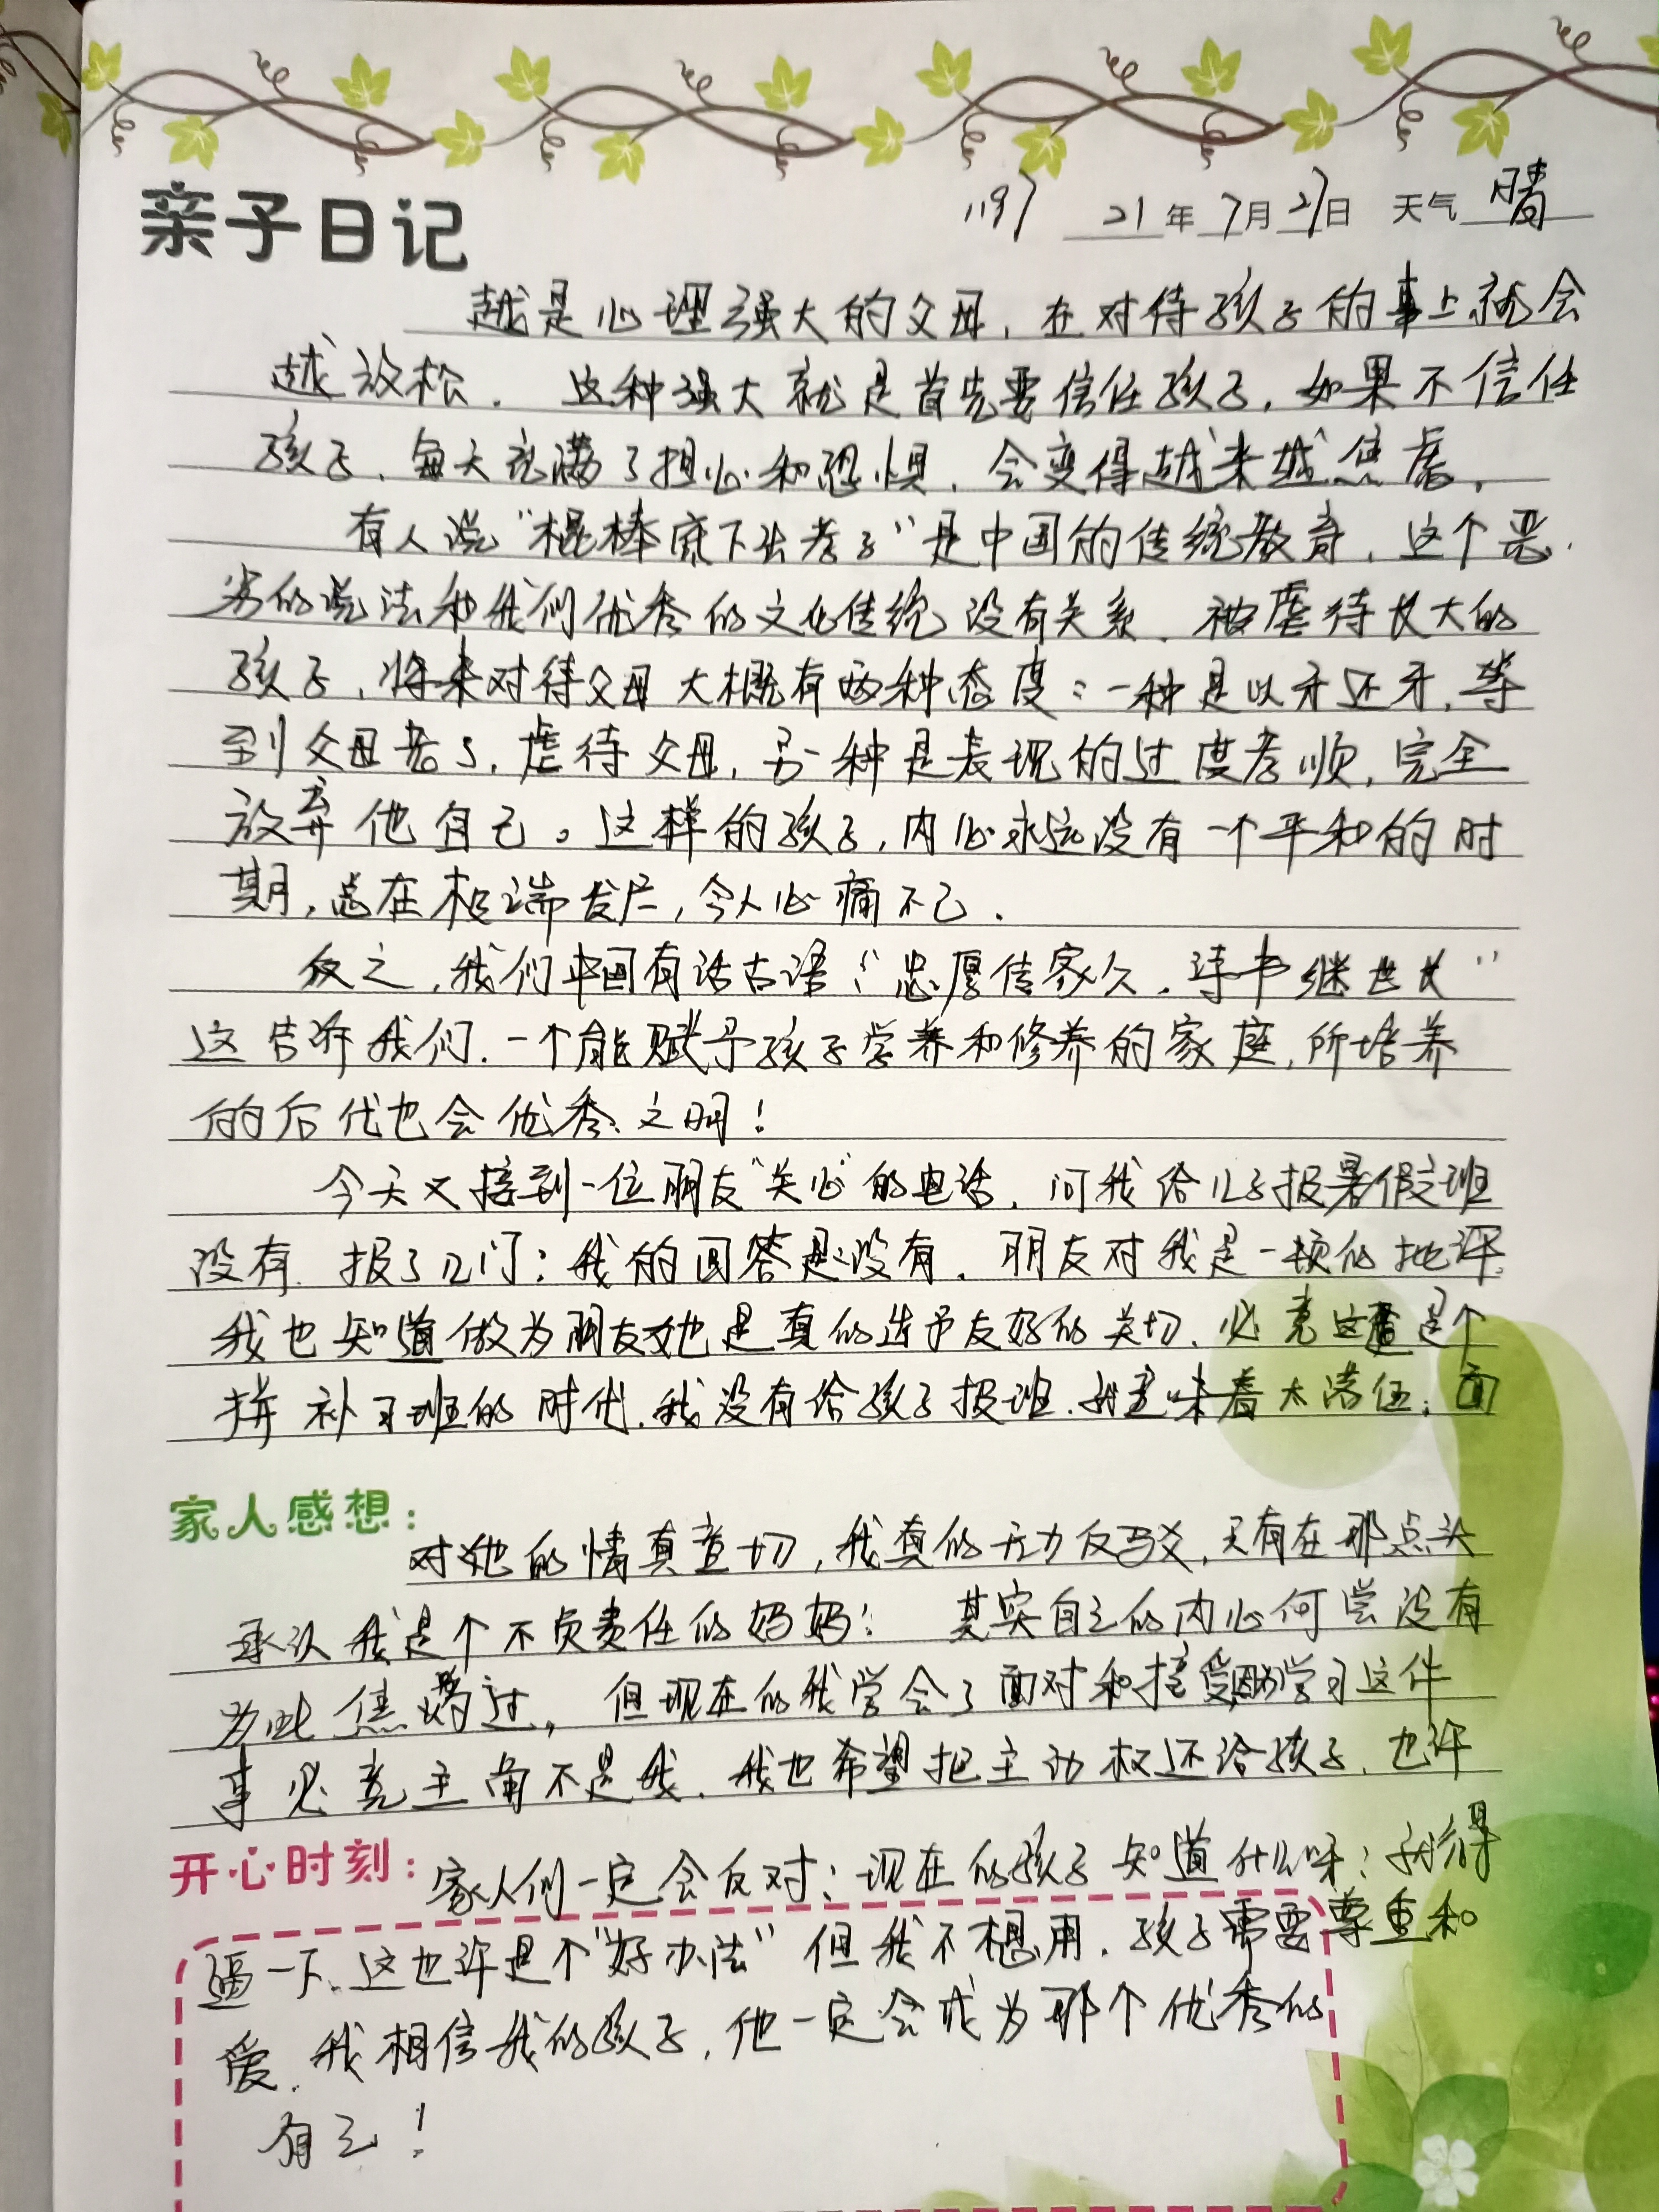 亲子日记
1197 21年7月27日 天气 晴
越是心理强大的父母，在对待孩子的事上就会
越放松。这种强大就是首先要信任孩子，如果不信任
孩子，每天充满了担心和恐惧，会变得越来越焦虑。
有人说“棍棒底下出孝子”是中国的传统教育，这个恶
劣的说法和我们优秀的文化传统没有关系，被虐待长大的
孩子，将来对待父母大概有两种态度：一种是以牙还牙，等
到父母老了，虐待父母，另一种是表现的过度孝顺，完全
放弃他自己。这样的孩子，内心永远没有一个平和的时
期，总在极端发展，令人心痛不已。
反之，我们中国有话古语：“忠厚传家久，诗书继世长”
这告诉我们，一个能赋予孩子学养和修养的家庭，所培养
的后代也会优秀、文明！
今天又接到一位朋友“关心”的电话，问我给儿子报暑假班
没有，报了几门；我的回答是没有，朋友对我是一顿的批评
我也知道做为朋友她也是真的出于友好的关切，必竟这是个
拼补习班的时代，我没有给孩子报班，意味着太落伍；面
家人感想：
对她的情真意切，我真的无力反驳，只有在那点头
承认我是个不负责任的妈妈！其实自己的内心何尝没有
为此焦灼过，但现在的我学会了面对和接受因为学习这件
事必竟主角不是我，我也希望把主动权还给孩子，也许
开心时刻：
家人们一定会反对；现在的孩子知道什么呀；就得
逼一下，这也许是个“好办法”但我不想用，孩子需要尊重和
爱，我相信我的孩子，他一定会成为那个优秀的
自己！